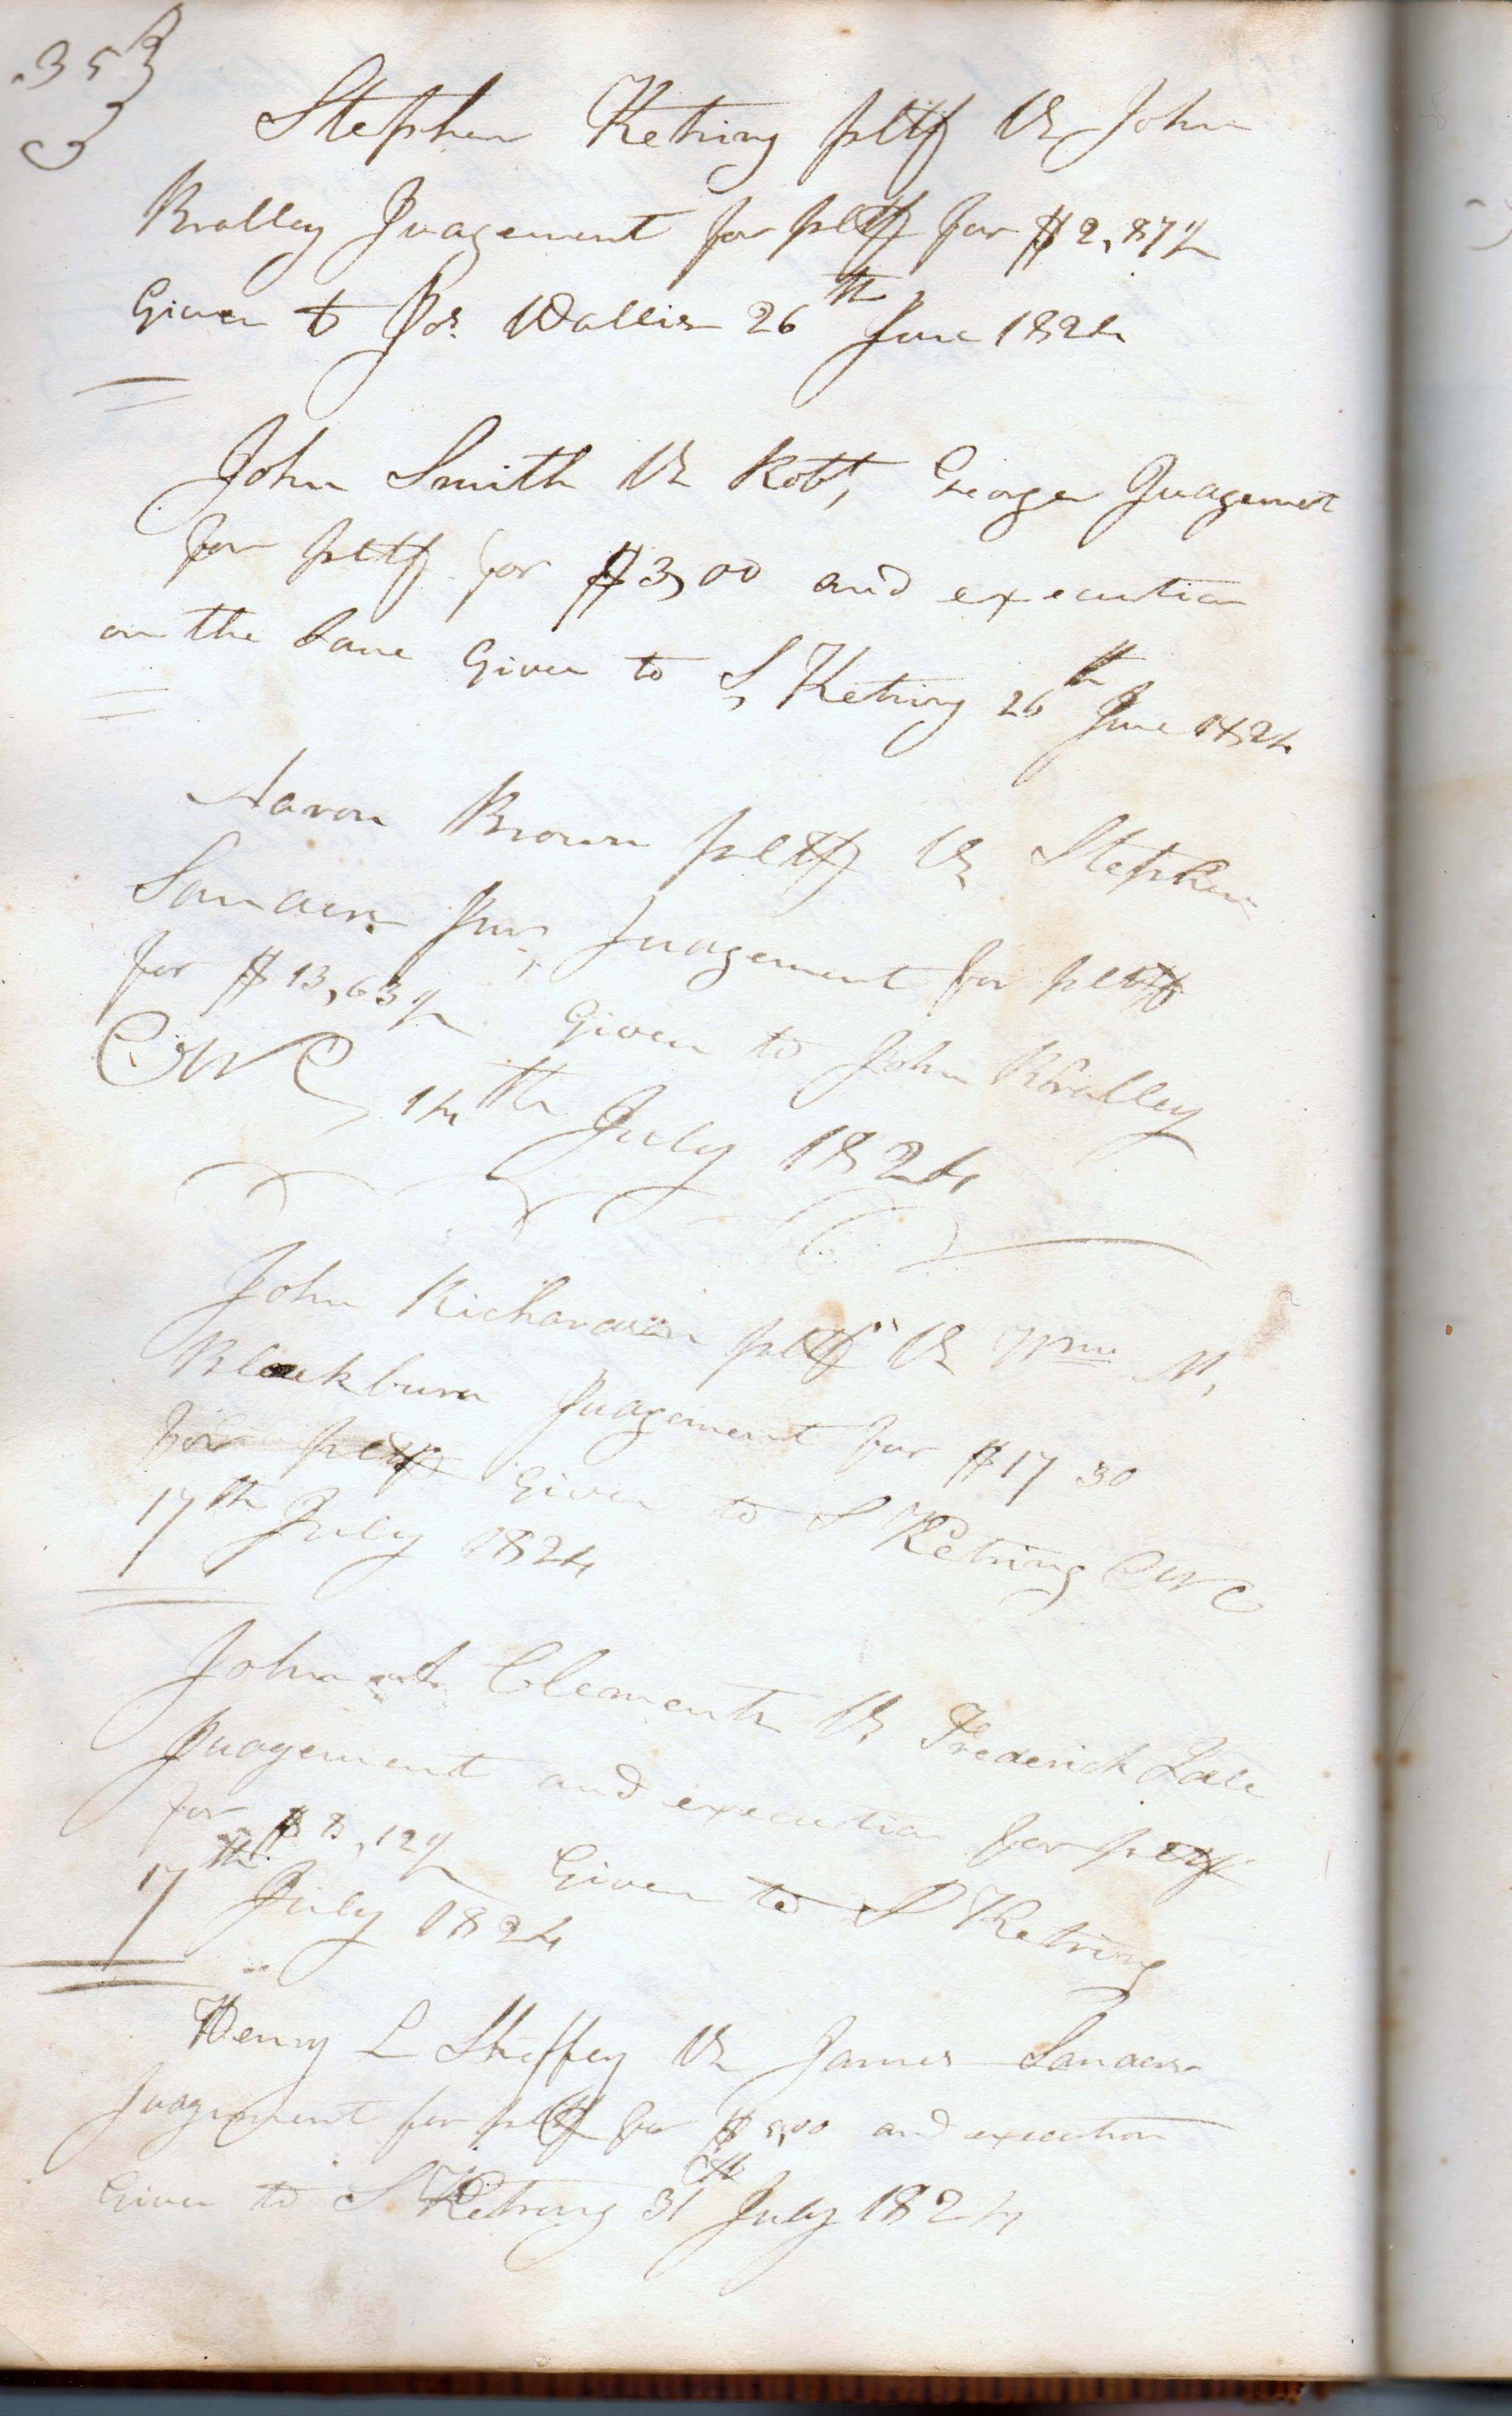 353
Stephen Ketring pltff Vs John
Bralley Judgement for pltff for $2,87½
Given to Jos. Wallis 26th June 1824
John Smith Vs Robt, George Judgement
for pltff for $3,00 and execution
on the Same Given to S, Ketring 26th June 1824
Aaron Brown pltff Vs Stephen
Sanders Junr, Judgement for pltff
for $13,63½ Given to John Bralley
CWC 14th July 1824
John Richardson pltff Vs Wm M,
Blackburn Judgement for $17 30
for pltff Given to S Ketring CWC
17th July 1824
John Clements Vs Frederick
Judgement and execution for pltff
for $8,12½ Given to S Ketring
17th July 1824
Henry L Sheffey Vs James Sanders
Judgement for pltff for and execution
Given to S Ketring 31st July 1824